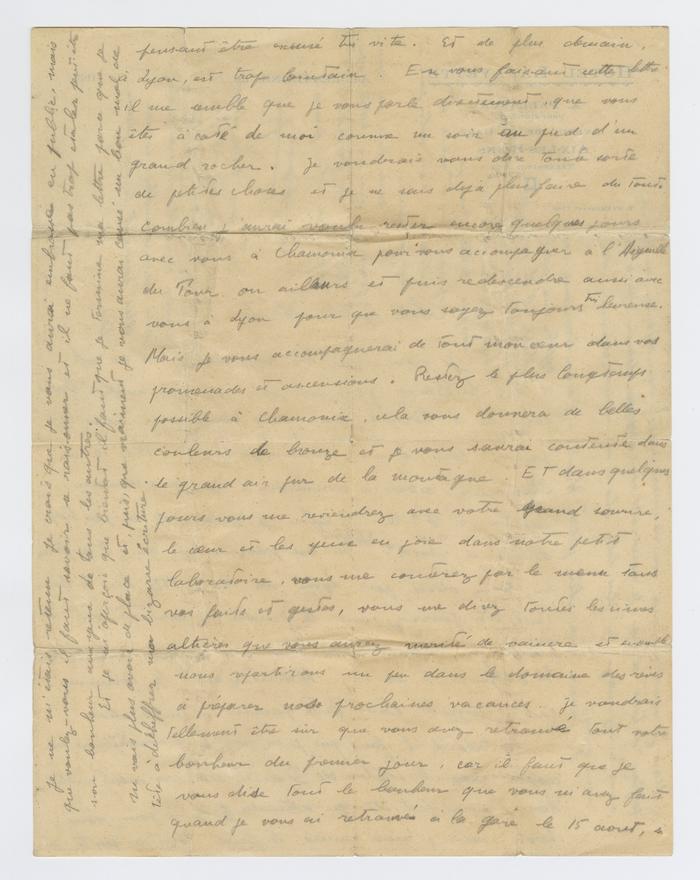 pensant être excusé très vite. Et de plus demain,
Lyon, est trop lointain. En vous faisant cette lettre
il me semble que je vous parle directement, que vous
êtes à coté de moi comme un soir au pied d'un
grand rocher. Je voudrais vous dire toute sorte
de petites choses et je ne sais déjà plus faire du tout
combien j'aurai voulu rester encore quelques jours
avec vous à Chamonix pour vous accompagner à l'Aiguille
du Tour ou ailleurs et puis redescendre aussi avec
vous à Lyon pour que vous soyez toujours très heureuse.
Mais je vous accompagnerai de tout mon cœur dans vos
promenades et ascensions. Restez le plus longtemps
possible à Chamonix, cela vous donnera de belles
couleurs de bronze et je vous saurai contente dans
le grand air pur de la montagne. ET dans quelques
jours vous me reviendrez avec votre grand sourire,
le cœur et les yeux en joie dans notre petit
laboratoire, vous me conterez par le menu tous
vos faits et gestes, vous me direz toutes les cimes
altières que vous aurez mérité de vaincre et ensemble
nous repartirons un peu dans le domaine des rêves
à préparer nos prochaines vacances. je voudrais
tellement être sûr que vous avez retrouvé tout votre
bonheur du premier jour, car il faut que je
vous dise tout le bonheur que vous m'avez fait
quand je vous ai retrouvée à la gare le 15 aout,
je ne m'étais retenu je crois que je vous aurai embrassée en public, mais
que voulez-vous il faut savoir se raisonner et il ne faut pas trop étaler
son bonheur aux yeux de tous les autres.
Et je m'aperçoi que bientôt il faut que je termine ma lettre parce que je
ne vais plus avoir de place et puis que vraiment je vous aurai causé un bon mal de
tête à déchiffrer ma bizarre écriture.